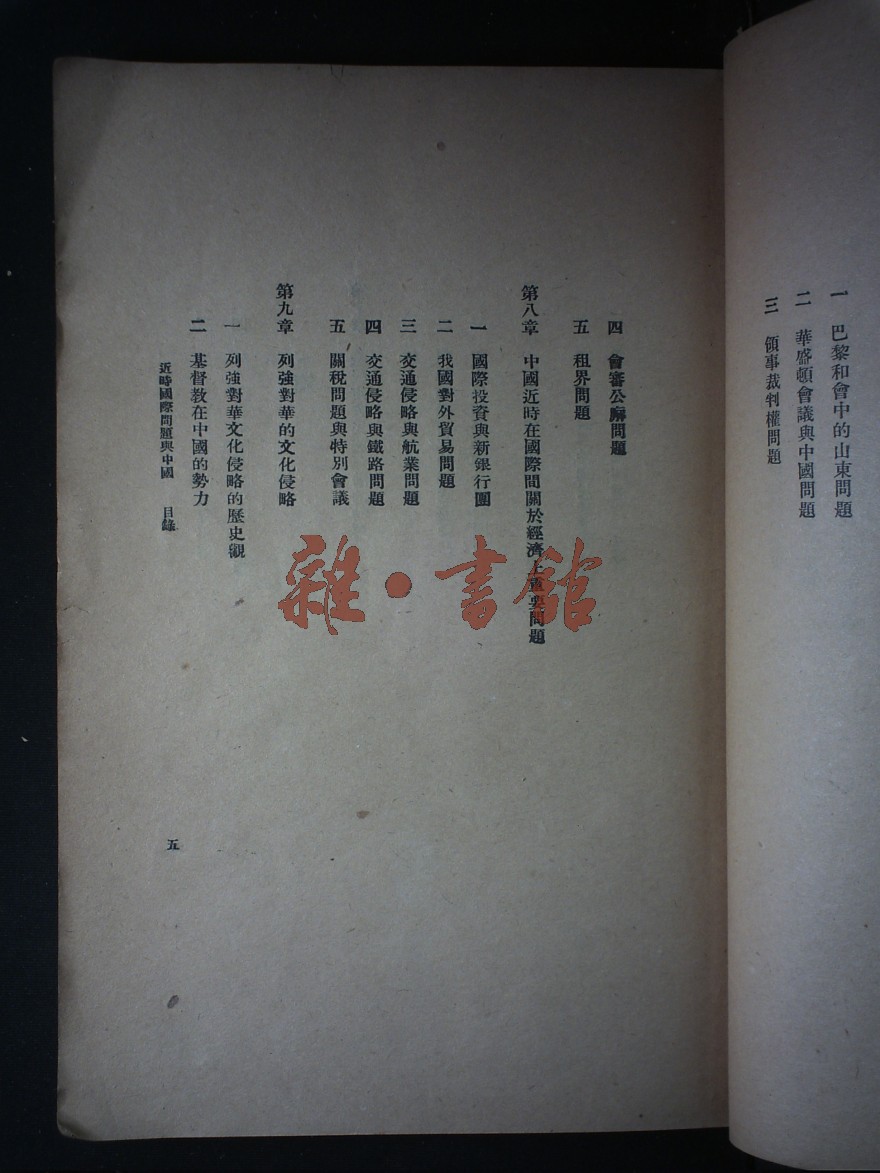 一 巴黎和會中的山東問題
二 華盛頓會議與中國問題
三 領事裁判權問題
四 會審公廨問題
五 租界問題
第八章 中國近時在國際間關於經濟上重要問題
一 國際投資與新銀行團
二 我國對外貿易問題
三 交通侵略與航業問題
四 交通侵略與鐵路問題
五 關稅問題與特別會議
第九章 列強對華的文化侵略
一 列強對華文化侵略的歷史觀
二 基督教在中國的勢力
近時國際問題與中國 目錄
五
雜·書館